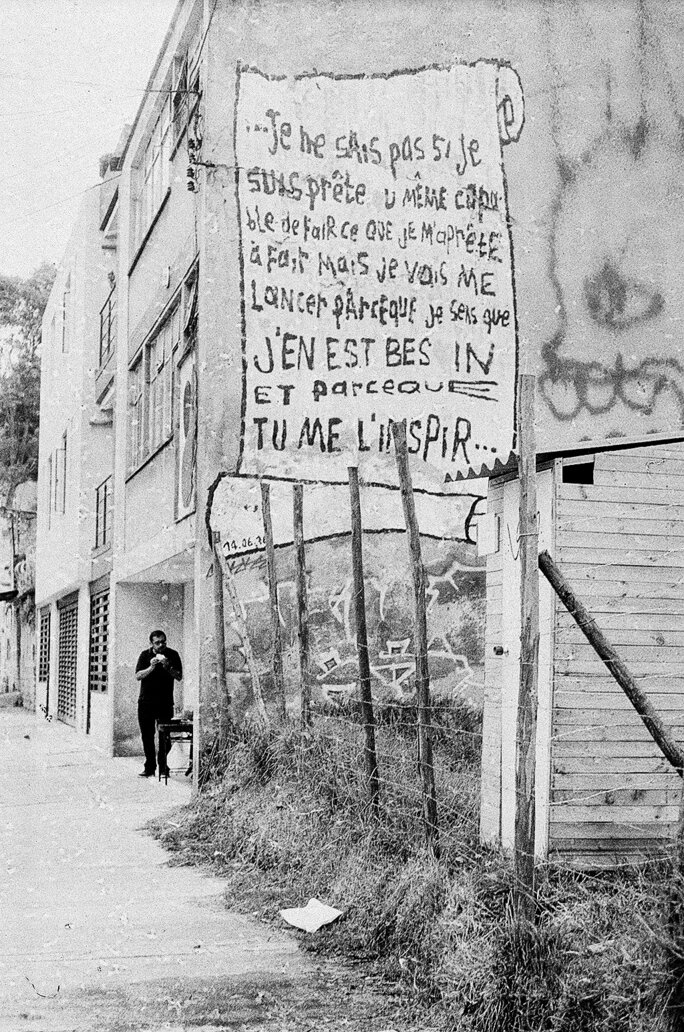 ...Je ne sAis pas si je
suis prête u MÊME capa
ble de faiR ce QUE JE M'APRÊTE
à faiR MAis je vais ME
LANcer pArceque je sens que
J'EN EST BES IN
ET parceque
TU ME L'INSPIR...